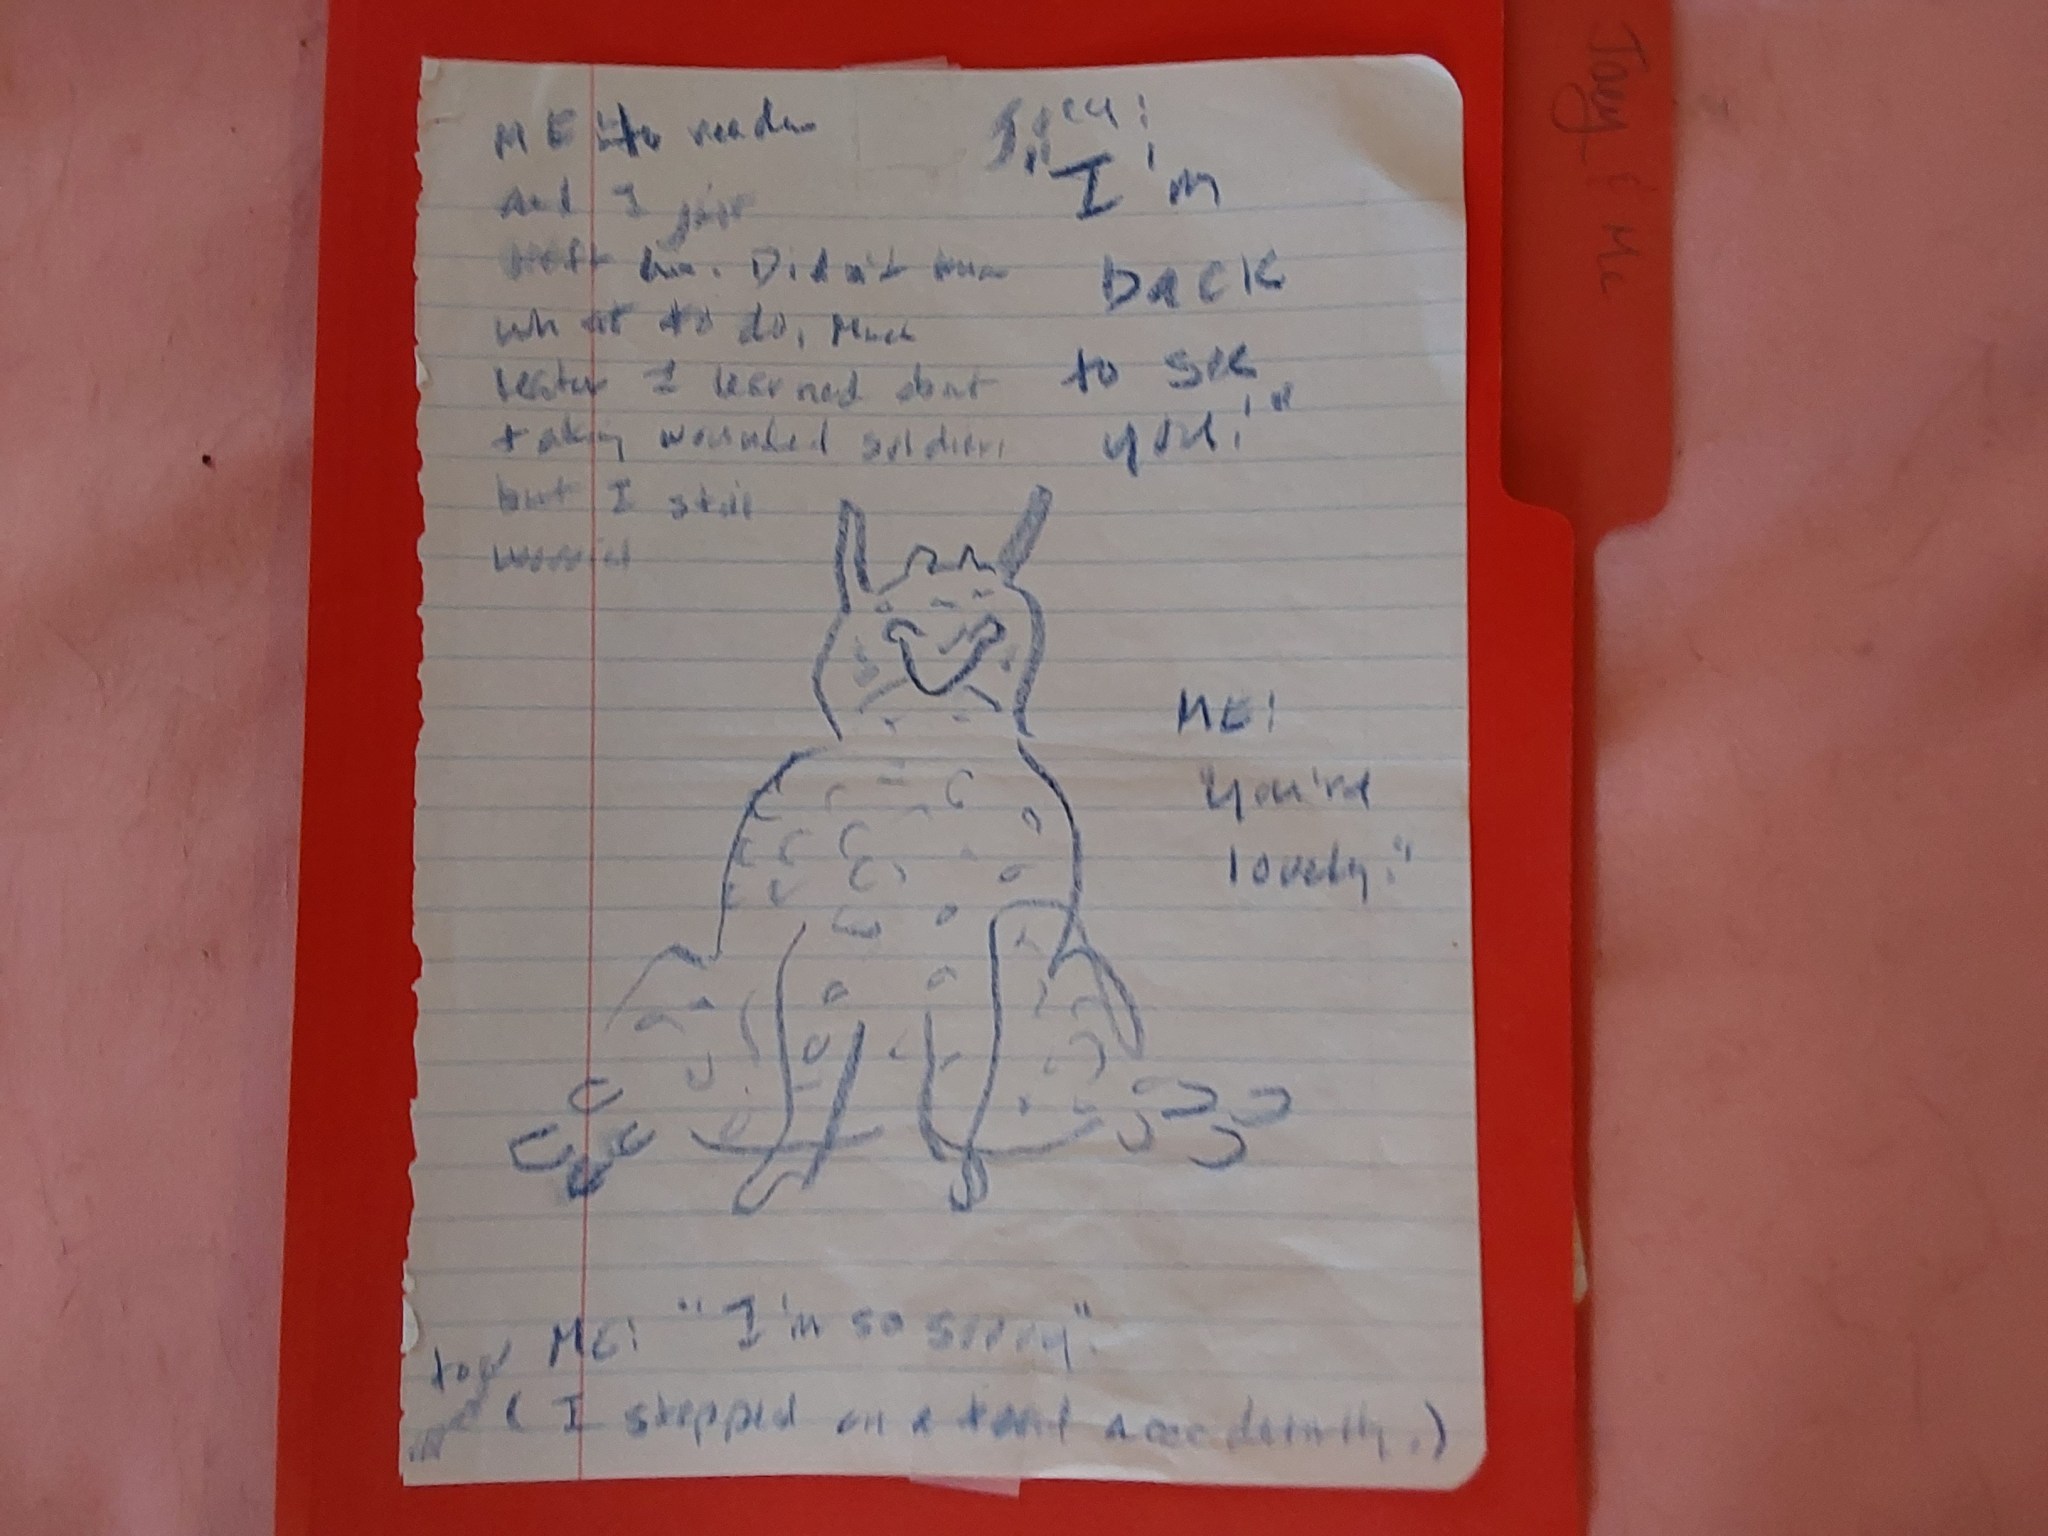 ME to reader
And I just
left him. Didn't know
what to do. Much
later I learned about
taking wounded soldiers
but I still
worried
I'm
back
to see
you!"
ME:
"you're
lovely."
to ME: "I'm so sorry".
(I stepped on a toad accedentally.)
Joey & Me